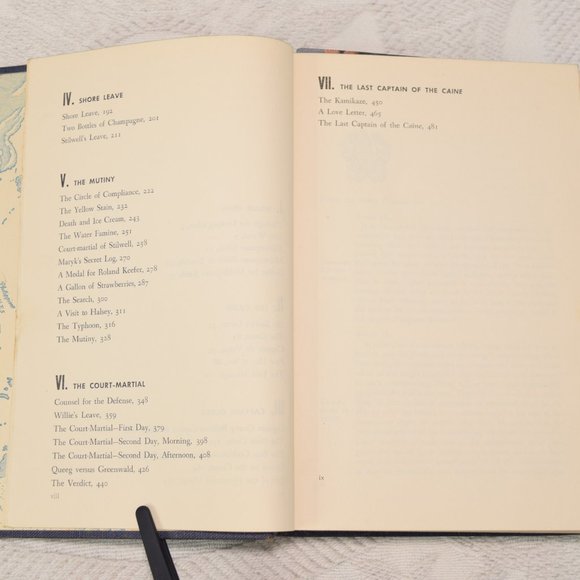 IV. SHORE LEAVE
Shore Leave, 192
Two Bottles of Champagne, 201
Stilwell's Leave, 211
V. THE MUTINY
The Circle of Compliance, 222
The Yellow Stain, 232
Death and Ice Cream, 243
The Water Famine, 251
Court-martial of Stilwell, 258
Maryk's Secret Log, 270
A Medal for Roland Keefer, 278
A Gallon of Strawberries, 287
The Search, 300
A Visit to Halsey, 311
The Typhoon, 316
The Mutiny, 328
VI. THE COURT-MARTIAL
Counsel for the Defense, 348
Willie's Leave, 359
The Court-Martial—First Day, 379
The Court-Martial—Second Day, Morning, 398
The Court-Martial—Second Day, Afternoon, 408
Queeg versus Greenwald, 426
The Verdict, 440
viii
VII. THE LAST CAPTAIN OF THE CAINE
The Kamikaze, 450
A Love Letter, 465
The Last Captain of the Caine, 481
ix